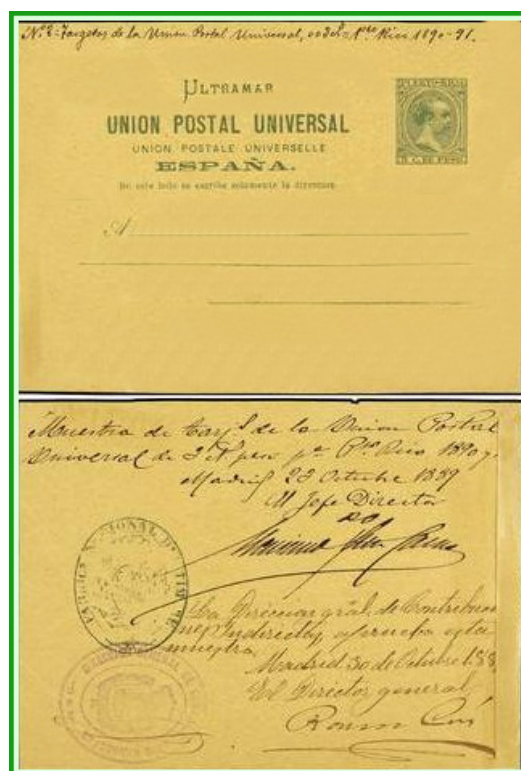 Nº 2 = Targetas de la Union Postal Universal, Pto Rico 1890-91.
ULTRAMAR
UNION POSTAL UNIVERSAL
UNION POSTALE UNIVERSELLE
ESPAÑA.
En este lado se escribe solamente la direccion.
PUERTO-RICO
3 C. DE PESO
A
Muestra de Tarjs de la Union Postal
Universal de 3 cs peso pa Pto Rico 1890 y
Madrid 23 Octubre 1889
El Jefe Director
FABRICA NACIONAL DEL TIMBRE
La Direccion gral. de Contribucio
nes Indirectas, aprueba esta
muestra.
Madrid 30 de Octubre 188
El Director general,